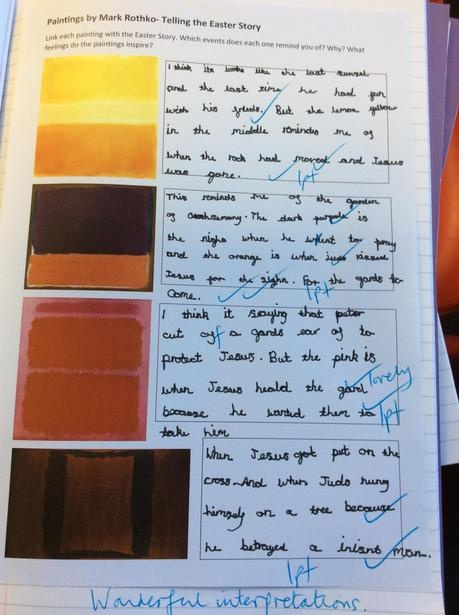 Paintings by Mark Rothko- Telling the Easter Story
Link each painting with the Easter Story. Which events does each one remind you of? Why? What
feelings do the paintings inspire?
I think its looks like the last sunset
and the last time he had fun
with his But the lemon yellow
in the middle reminds me of
when the rock had moved and Jesus
was gone.
1pt
This reminds me of the garden
of The dark purple is
the night when he went to pray
and the orange is when kissed
Jesus for the sighn. For the gards to
come.
1pt
I think it saying that peter
cut off a gards ear of to
protect Jesus. But the pink is
when Jesus heald the gard
lovely
because he wanted them to
1pt
take him
When Jesus got put on the
cross. And when Judo hung
himself on a tree because
he betrayed a inisnt man.
1pt
Wonderful interpretations.